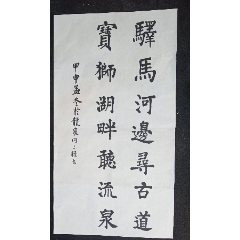 驛馬河邊尋古道
寶獅湖畔聽流泉
甲申孟冬於龍泉